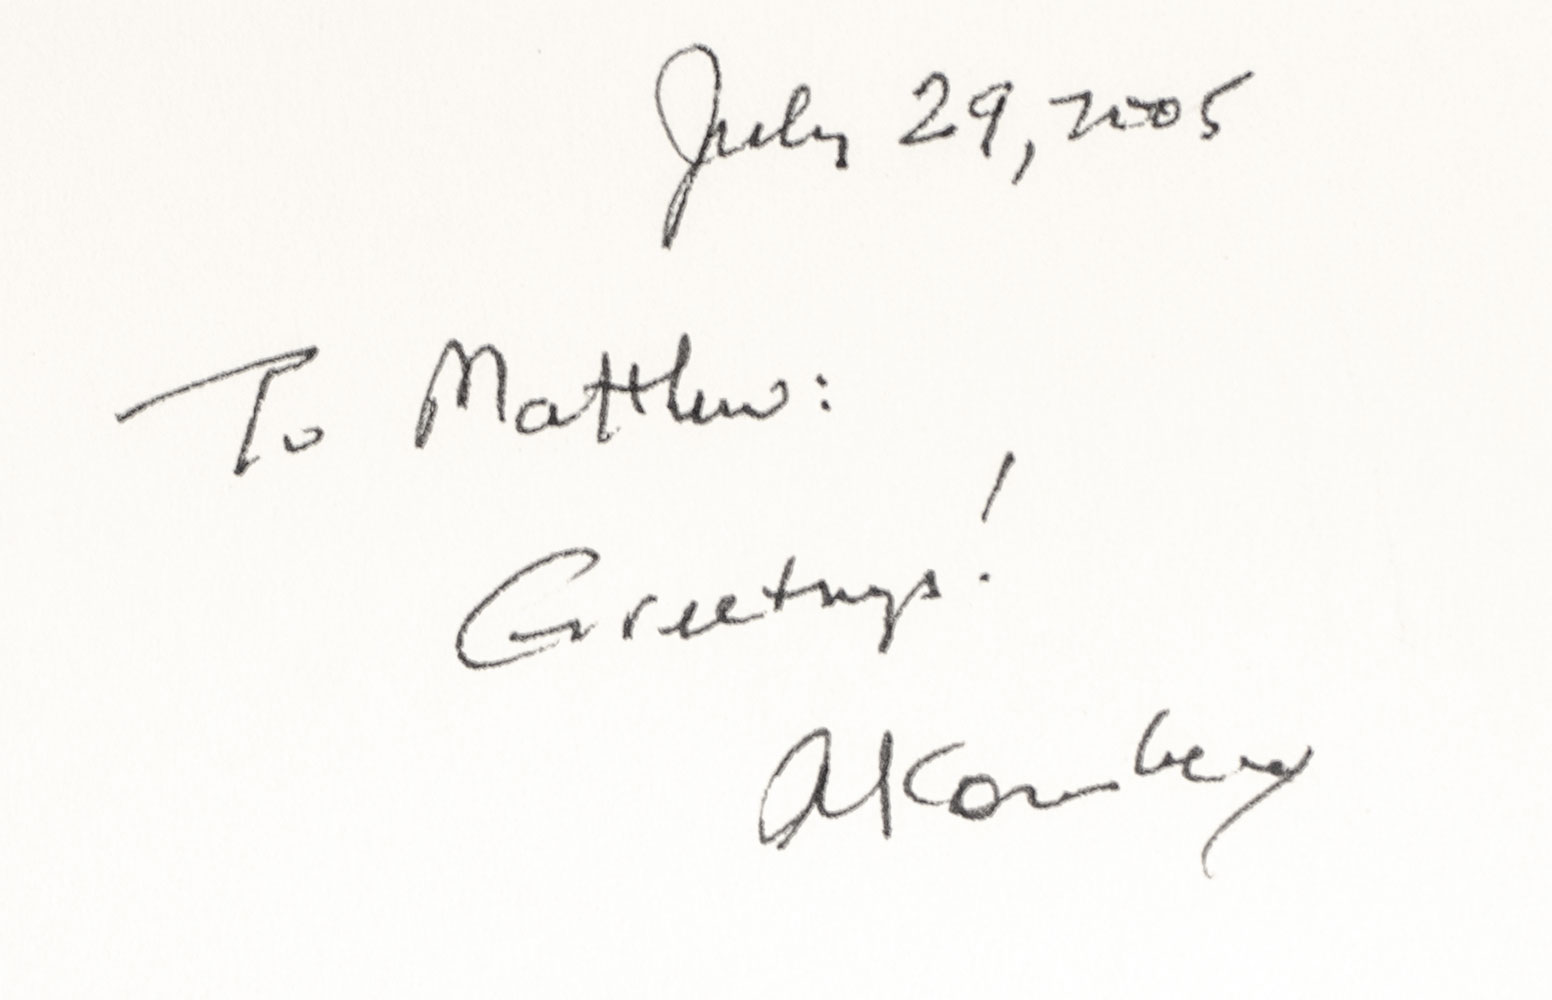 July 29, 2005
To Matthew:
Greetings!
AKornberg